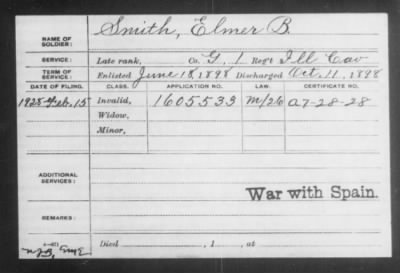 NAME OF SOLDIER: Smith, Elmer B.
SERVICE: Late rank, Co. G, 1 Reg't Ill Cav
TERM OF SERVICE: Enlisted June 18, 1898 Discharged Oct. 11, 1898
DATE OF FILING. CLASS. APPLICATION NO. LAW. CERTIFICATE NO.
1928 Feb. 15 Invalid, 1605533 M/26 A7-28-28
Widow,
Minor,
ADDITIONAL SERVICES:
War with Spain.
REMARKS:
Died , 1 , at